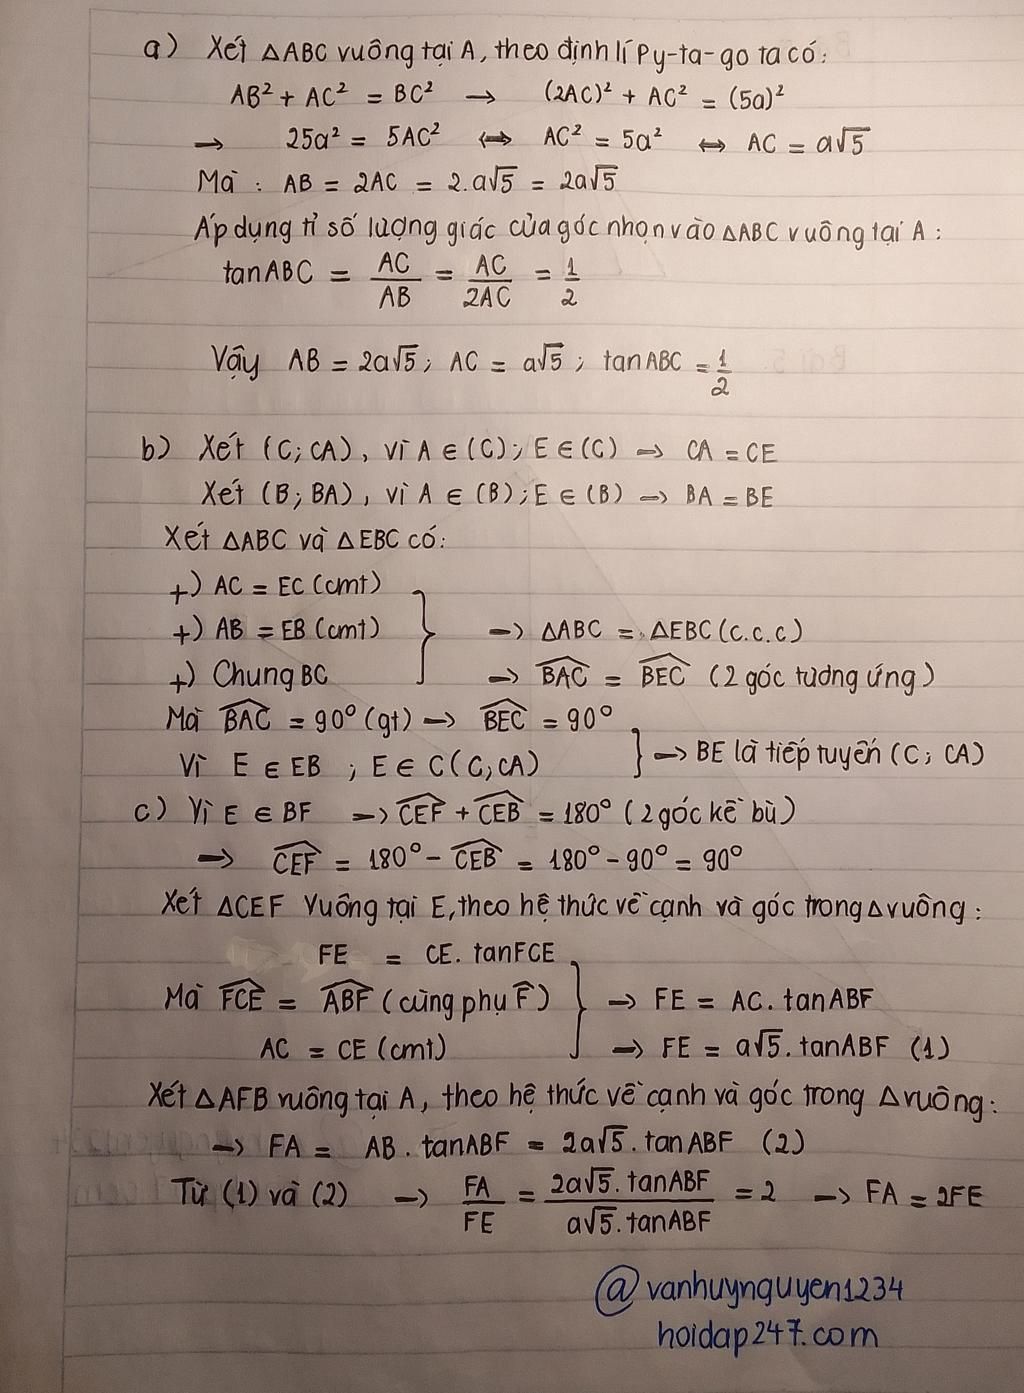 a) Xét ΔABC vuông tại A, theo định lí Py-ta-go ta có:
AB² + AC² = BC² → (2AC)² + AC² = (5a)²
→ 25a² = 5AC² ⇔ AC² = 5a² ⇔ AC = a√5
Mà : AB = 2AC = 2.a√5 = 2a√5
Áp dụng tỉ số lượng giác của góc nhọn vào ΔABC vuông tại A :
tanABC = AC/AB = AC/2AC = 1/2
Vậy AB = 2a√5 ; AC = a√5 ; tanABC = 1/2
b) Xét (C; CA), vì A ∈ (C); E ∈ (C) → CA = CE
Xét (B; BA), vì A ∈ (B); E ∈ (B) → BA = BE
Xét ΔABC và ΔEBC có:
+) AC = EC (cmt)
+) AB = EB (cmt) } → ΔABC = ΔEBC (c.c.c)
+) Chung BC → \widehat{BAC} = \widehat{BEC} (2 góc tương ứng)
Mà \widehat{BAC} = 90° (gt) → \widehat{BEC} = 90°
Vì E ∈ EB ; E ∈ C(C,CA) } → BE là tiếp tuyến (C; CA)
c) Vì E ∈ BF → \widehat{CEF} + \widehat{CEB} = 180° (2 góc kề bù)
→ \widehat{CEF} = 180° - \widehat{CEB} = 180° - 90° = 90°
Xét ΔCEF vuông tại E, theo hệ thức về cạnh và góc trong Δvuông :
FE = CE. tanFCE
Mà \widehat{FCE} = \widehat{ABF} (cùng phụ \widehat{F}) } → FE = AC. tanABF
AC = CE (cmt) → FE = a√5. tanABF (1)
Xét ΔAFB vuông tại A, theo hệ thức về cạnh và góc trong Δvuông:
→ FA = AB . tanABF = 2a√5. tanABF (2)
Từ (1) và (2) → FA/FE = 2a√5. tanABF/a√5. tanABF = 2 → FA = 2FE
@vanhuynguyen1234
hoidap247.com